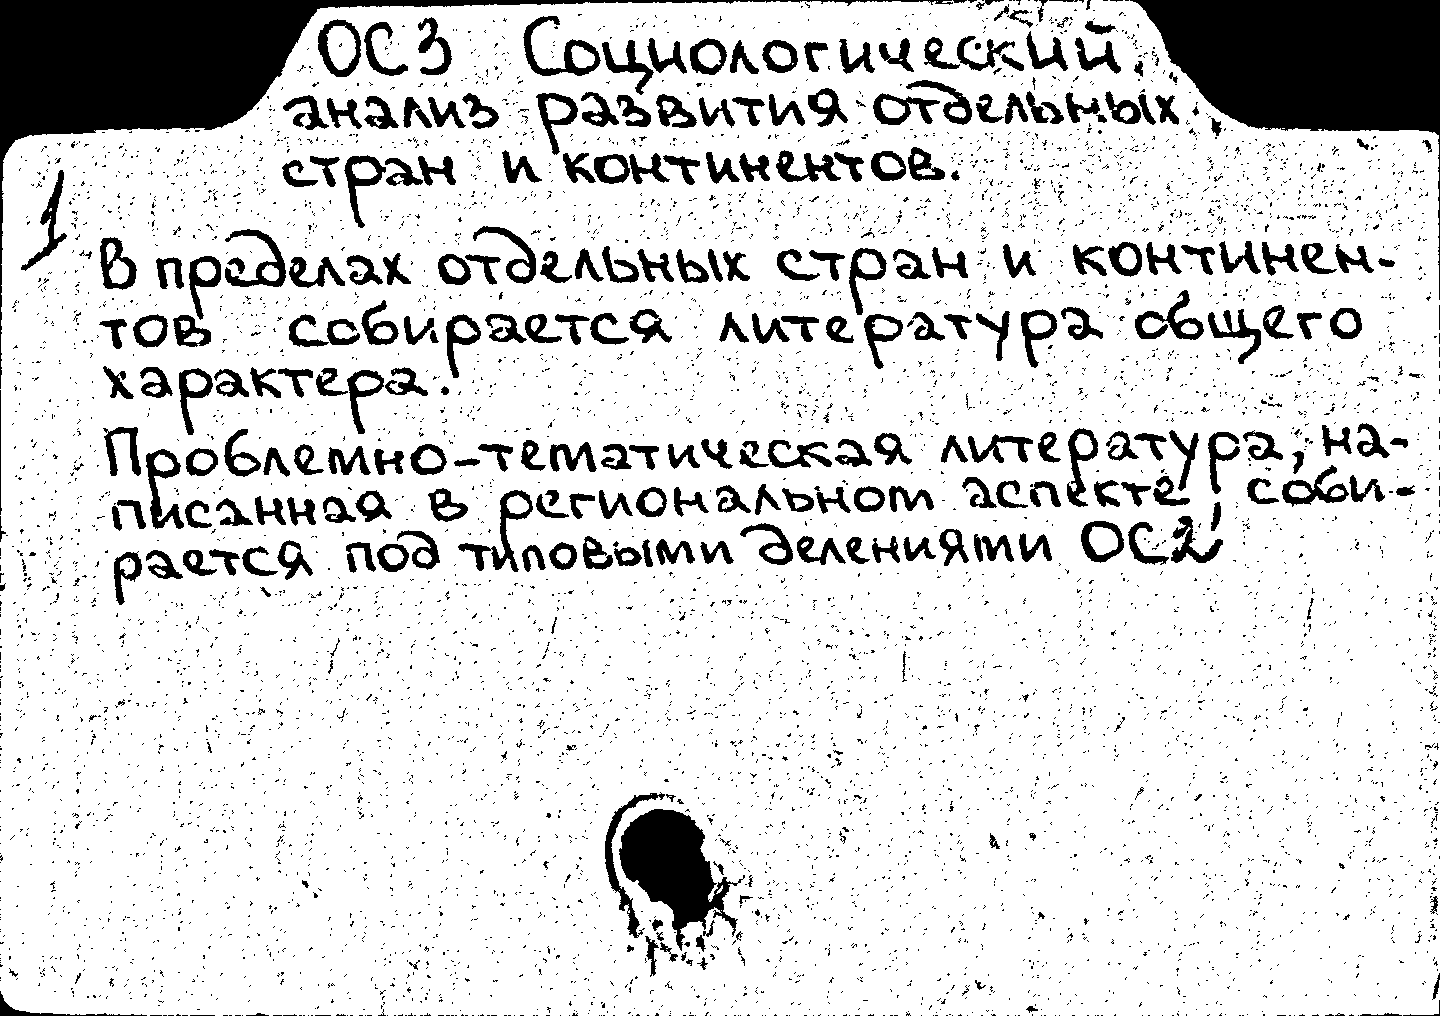 ОС3 Социологический
анализ развития отдельных
стран и континентов.
1
В пределах отдельных стран и континен-
тов собирается литература общего
характера.
Проблемно-тематическая литература, на-
писанная в региональном аспекте, соби-
рается под типовыми делениями ОС2